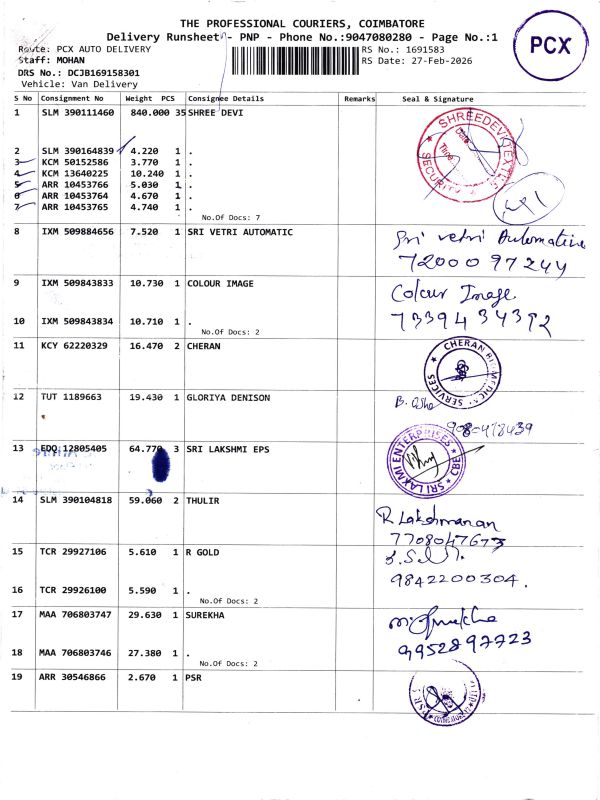 THE PROFESSIONAL COURIERS, COIMBATORE
Delivery Runsheet - PNP - Phone No.:9047080280 - Page No.:1
PCX
Route: PCX AUTO DELIVERY
RS No.: 1691583
Staff: MOHAN
RS Date: 27-Feb-2026
DRS No.: DCJB169158301
Vehicle: Van Delivery
S No Consignment No Weight PCS Consignee Details Remarks Seal & Signature
1 SLM 390111460 840.000 35 SHREE DEVI
2 SLM 390164839 4.220 1 .
3 KCM 50152586 3.770 1 .
4 KCM 13640225 10.240 1 .
5 ARR 10453766 5.030 1 .
6 ARR 10453764 4.670 1 .
7 ARR 10453765 4.740 1 .
No.Of Docs: 7
8 IXM 509884656 7.520 1 SRI VETRI AUTOMATIC
Sri vetri Automatic
7200097244
9 IXM 509843833 10.730 1 COLOUR IMAGE
Colour Image
7339434392
10 IXM 509843834 10.710 1 .
No.Of Docs: 2
11 KCY 62220329 16.470 2 CHERAN
12 TUT 1189663 19.430 1 GLORIYA DENISON
B. Usha
13 EDQ 12805405 64.770 3 SRI LAKSHMI EPS
SRI LAXMI ENTERPRISES CBE
14 SLM 390104818 59.060 2 THULIR
R Lakshmanan
7708047673
15 TCR 29927106 5.610 1 R GOLD
9842200304.
16 TCR 29926100 5.590 1 .
No.Of Docs: 2
17 MAA 706803747 29.630 1 SUREKHA
9952897723
18 MAA 706803746 27.380 1 .
No.Of Docs: 2
19 ARR 30546866 2.670 1 PSR